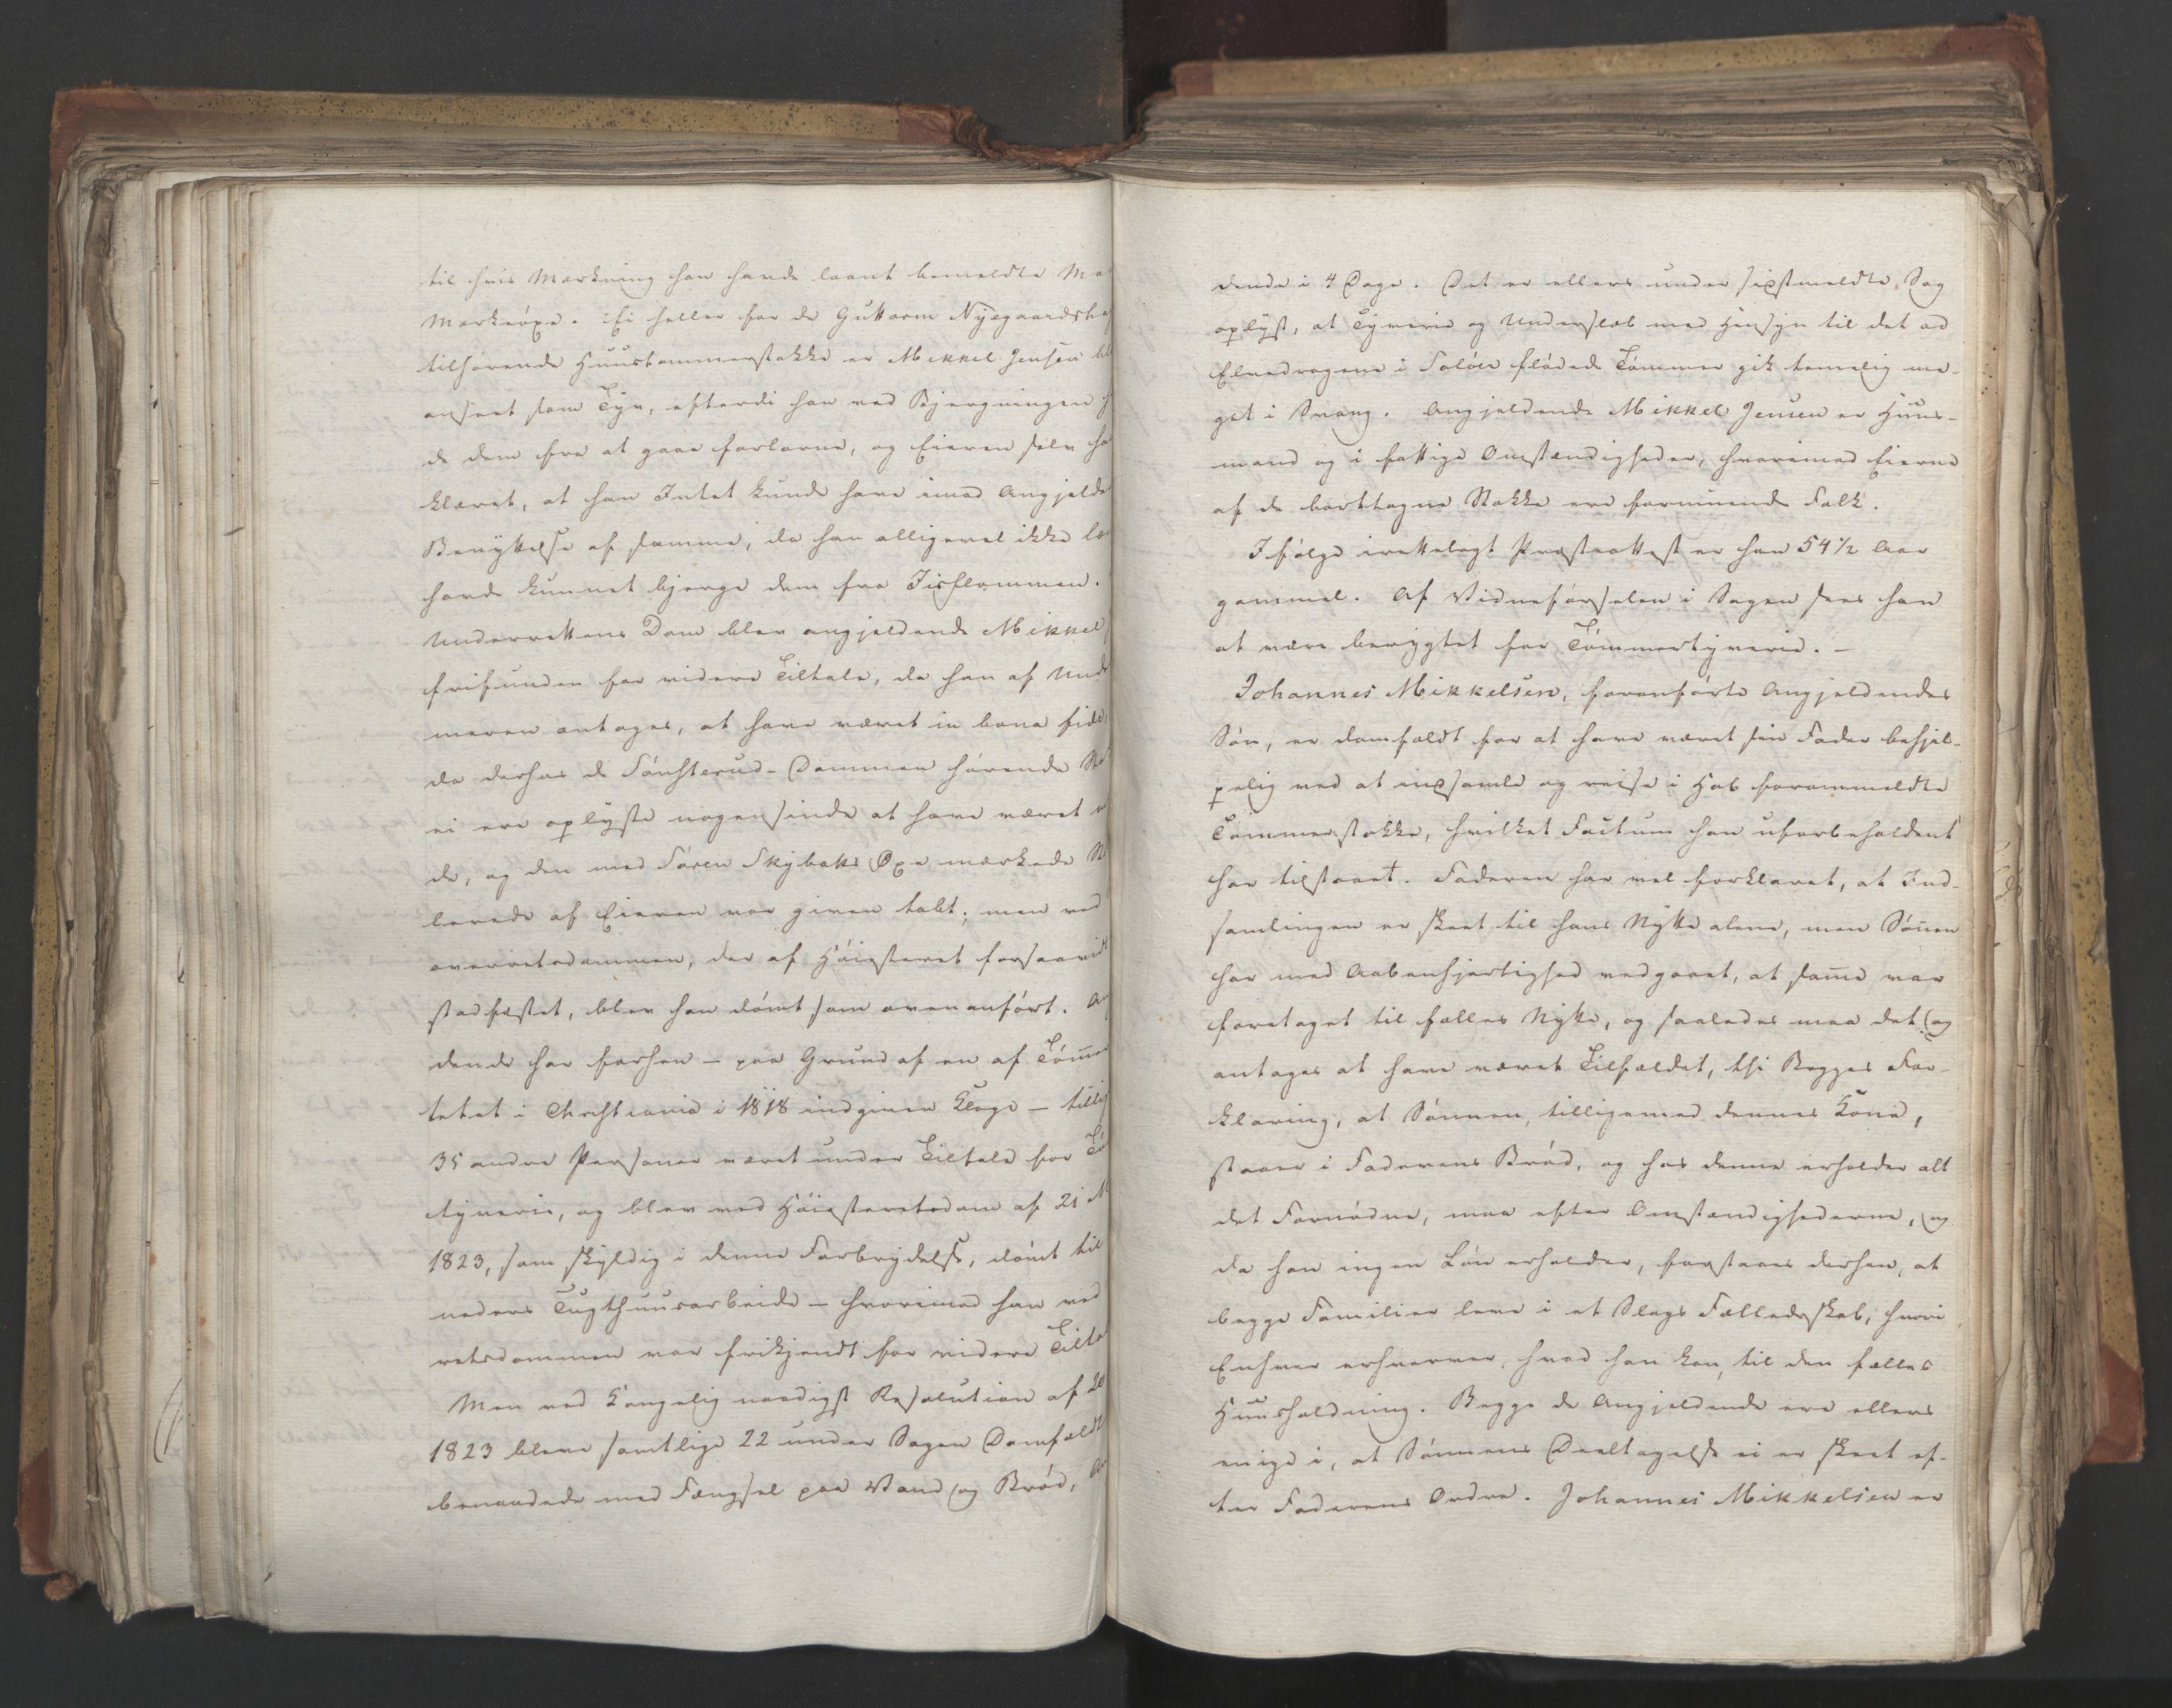 til hvis Mærkning han havde laant bemeldte
Mærkeöxe. Ei heller for de Guttorm Nÿegaards
tilhørende Huustømmerstokke er Mikkel Jensen
anseet som Tyv, efterdi han ved Bjergningen
de dem fra at gaae forlorne, og Eieren selv
klæret, at han Intet kunde have imod Angjelde
Benyttelse af samme, da han alligevel ikke
havde kunnet bjerge dem fra Iisflommen.
Underrettens Dom blev angjeldende Mikkel
frifunden for videre Tiltale, da han af
meren antages, at have været in bona fide,
da derhos de Tönsterud-Dammen hørende
ei ere oplyste nogensinde at have været
de, og den med Sören Skybaks Öxe mærkede
lerede af Eieren var given tabt; men ved
overretsdommen, der af Höiesteret forsaavidt
stadfæstet, blev han dömt som ovenanfört.
dende har forhen – paa Grund af en af
tetet i Christiania i 1818 indgiven Klage –
35 andre Personer været under Tiltale for
tyverie, og blev ved Höiesteretsdom af 21
1823, som skyldig i denne Forbrydelse, dömt til
neders Tugthuusarbeide – hvorimod han ved
retsdommen var frikjendt for videre
Men ved Kongelig naadigst Resolution af
1823 bleve samtlige 22 under Sagen Domfældte
benaadede med Fængsel paa Vand og Bröd,
dende i 4 Dage. Det er ellers under sidstmeldte Sag
oplyst, at Tyverie og Underslæb med Hensyn til det ad
Elvedragene i Solöer flödede Tömmer gik temmelig me-
get i Svang. Angjeldende Mikkel Jensen er Huus-
mand og i fattige Omstændigheder, hvorimod Eierne
af de borttagne Stokke ere formuende Folk.
Ifölge irettelagt Præsteattest er han 54½ Aar
gammel. Af Vidneförselen i Sagen sees han
at være berygtet for Tömmertyverie. –
Johannes Mikkelsen, foranförte Angjeldendes
Sön, er domfældt for at have været sin Fader behjel-
pelig ved at indsamle og reise i Hob forommeldte
Tömmerstokke, hvilket Factum han uforbeholdent
har tilstaaet. Faderen har vel forklaret, at Ind-
samlingen er skeet til hans Nytte alene, men Sönnen
har med Aabenhjertighed vedgaaet, at samme var
foretaget til fælles Nytte, og saaledes maa det og
antages at have været Tilfældet, thi Begges For-
klaring, at Sönnen, tilligemed dennes Kone,
staaer i Faderens Bröd, og hos denne erholder alt
det Fornödne, maa efter Omstændighederne, og
da han ingen Lön erholder, forstaaes derhen, at
begge Familier leve i et Slags Fælledsskab, hvori
Enhver erhverver, hvad han kan, til den fælles
Huusholdning. Begge de Angjeldende ere ellers
enige i, at Sönnens Deeltagelse ei er skeet ef-
ter Faderens Ordre. Johannes Mikkelsen er